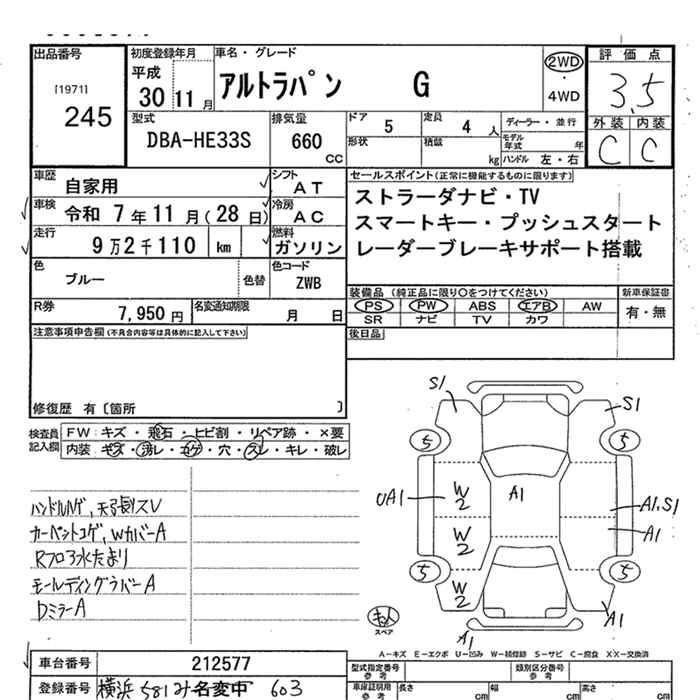 出品番号
[1971]
245
初度登録年月
平成
30 11 月
車名・グレード
アルトラパン G
2WD
・
4WD
評価点
3.5
外装 内装
C C
型式
DBA-HE33S
排気量
660
CC
ドア 5
定員 4 人
ディーラー・並行
形状
積載 kg
モデル年式 年
ハンドル 左・右
車歴 自家用
シフト AT
車検 令和 7 年 11 月 (28 日)
冷房 AC
走行 9万2千110 km
燃料 ガソリン
セールスポイント(正常に機能するものに限ります)
ストラーダナビ・TV
スマートキー・プッシュスタート
レーダーブレーキサポート搭載
色 ブルー 色替
色コード ZWB
R券 7,950 円
名変通知期限 月 日
装備品 (純正品に限り○をつけてください)
新車保証書
PS PW ABS エアB AW
有・無
SR ナビ TV カワ
後日品
注意事項申告欄(不具合内容等は具体的に記入して下さい)
修復歴 有〔箇所 〕
検査員記入欄
FW:キズ・飛石・ヒビ割・リペア跡・×要
内装:キズ・汚レ・コゲ・穴・スレ・キレ・破レ
ハンドルハゲ、天張スレ
カーペットコゲ、WカバーA
Rフロア水たまり
モールディングラバーA
DミラーA
S1
S1
5
5
UA1
W2
A1
A1.S1
W2
A1
5
5
W2
A1
A1
スペア
A-キズ E-エクボ U-凹み W-補修跡 S-サビ C-腐食 XX-交換済
車台番号 212577
登録番号 横浜 581 み 名変中 603
型式指定番号 参考
類別区分番号 参考
車庫証明用 参考
長さ cm
幅 cm
高さ cm